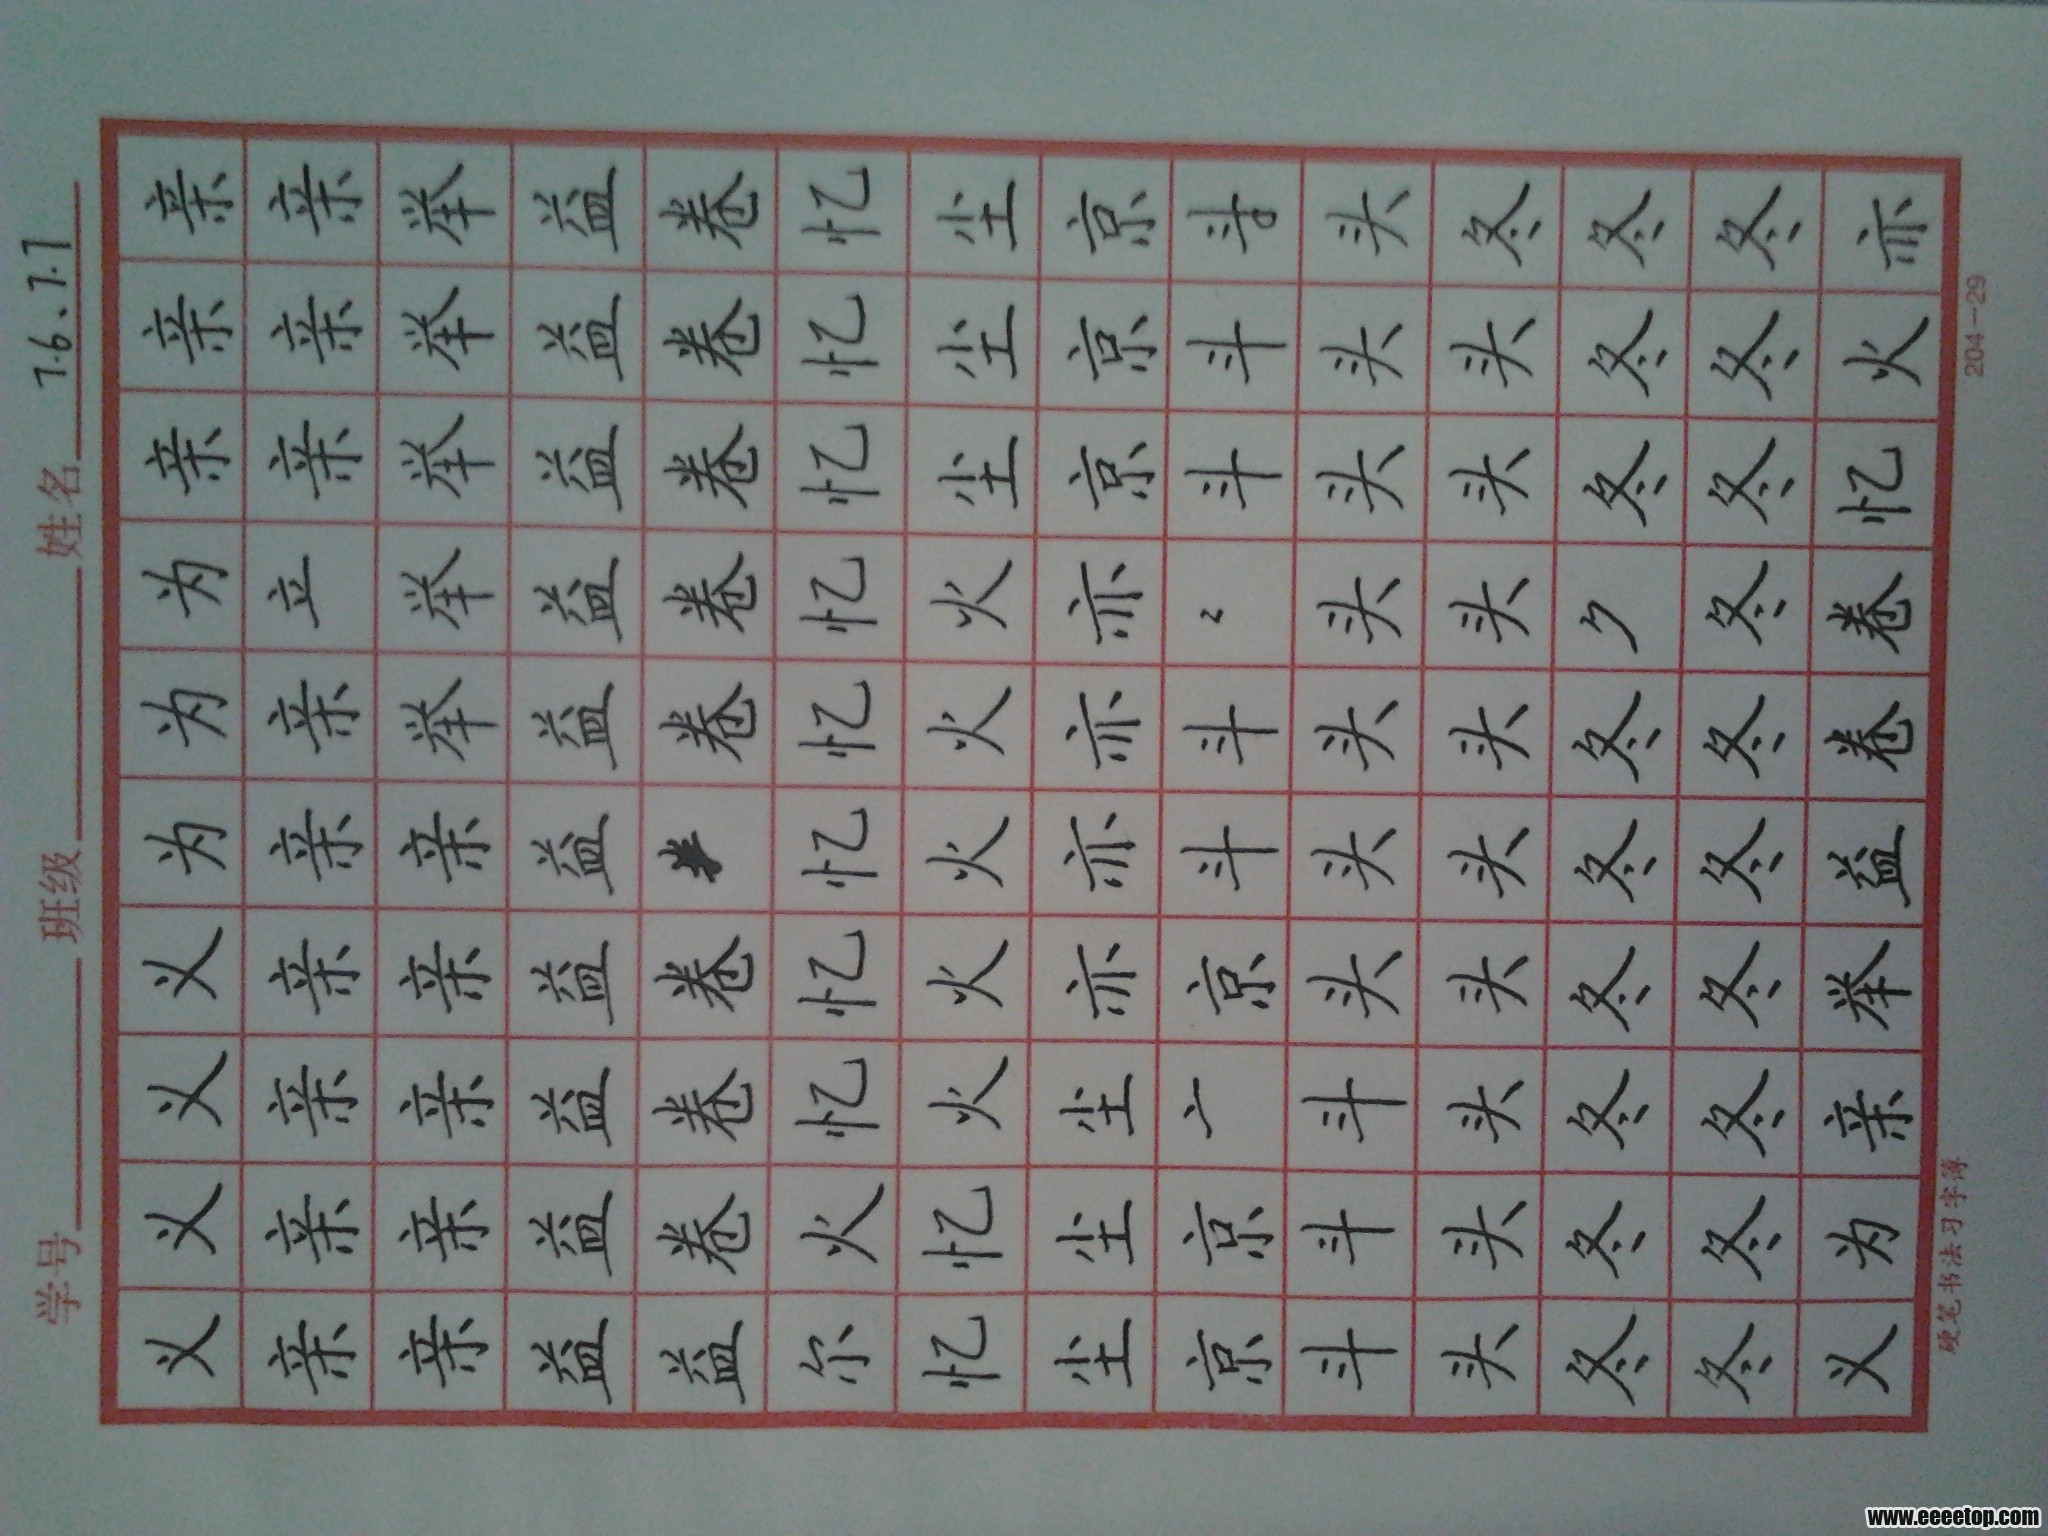 学号 班级 姓名 7.6、7.7
义义义义为为为亲亲亲
亲亲亲亲亲亲立亲亲亲
亲亲亲亲亲举举举举举
益益益益益益益益益益
益卷卷卷卷卷卷卷卷
尔火忆忆忆忆忆忆忆忆
忆忆火火火火火尘尘尘
尘尘尘亦亦亦亦京京京
京京亠京斗斗斗斗
斗斗斗头头头头头头头
头头头头头头头头头冬
冬冬冬冬冬冬冬冬冬
冬冬冬冬冬冬冬冬冬冬
义为亲举益卷卷忆火亦
硬笔书法习字簿 204-29
www.eeeetop.com